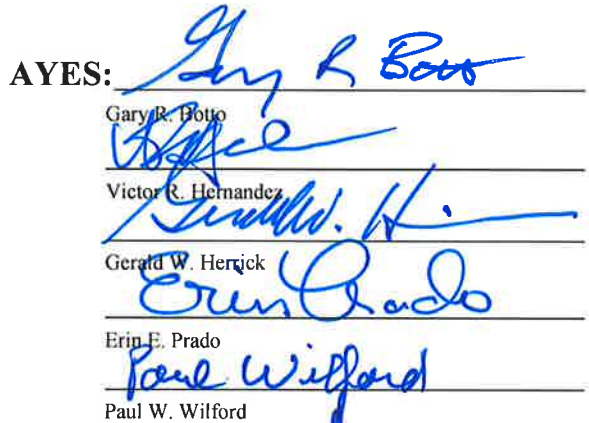 AYES: Gary R Botto
Gary R. Botto
Victor R. Hernandez
Gerald W. H
Gerald W. Herrick
Erin Prado
Erin E. Prado
Paul Wilford
Paul W. Wilford